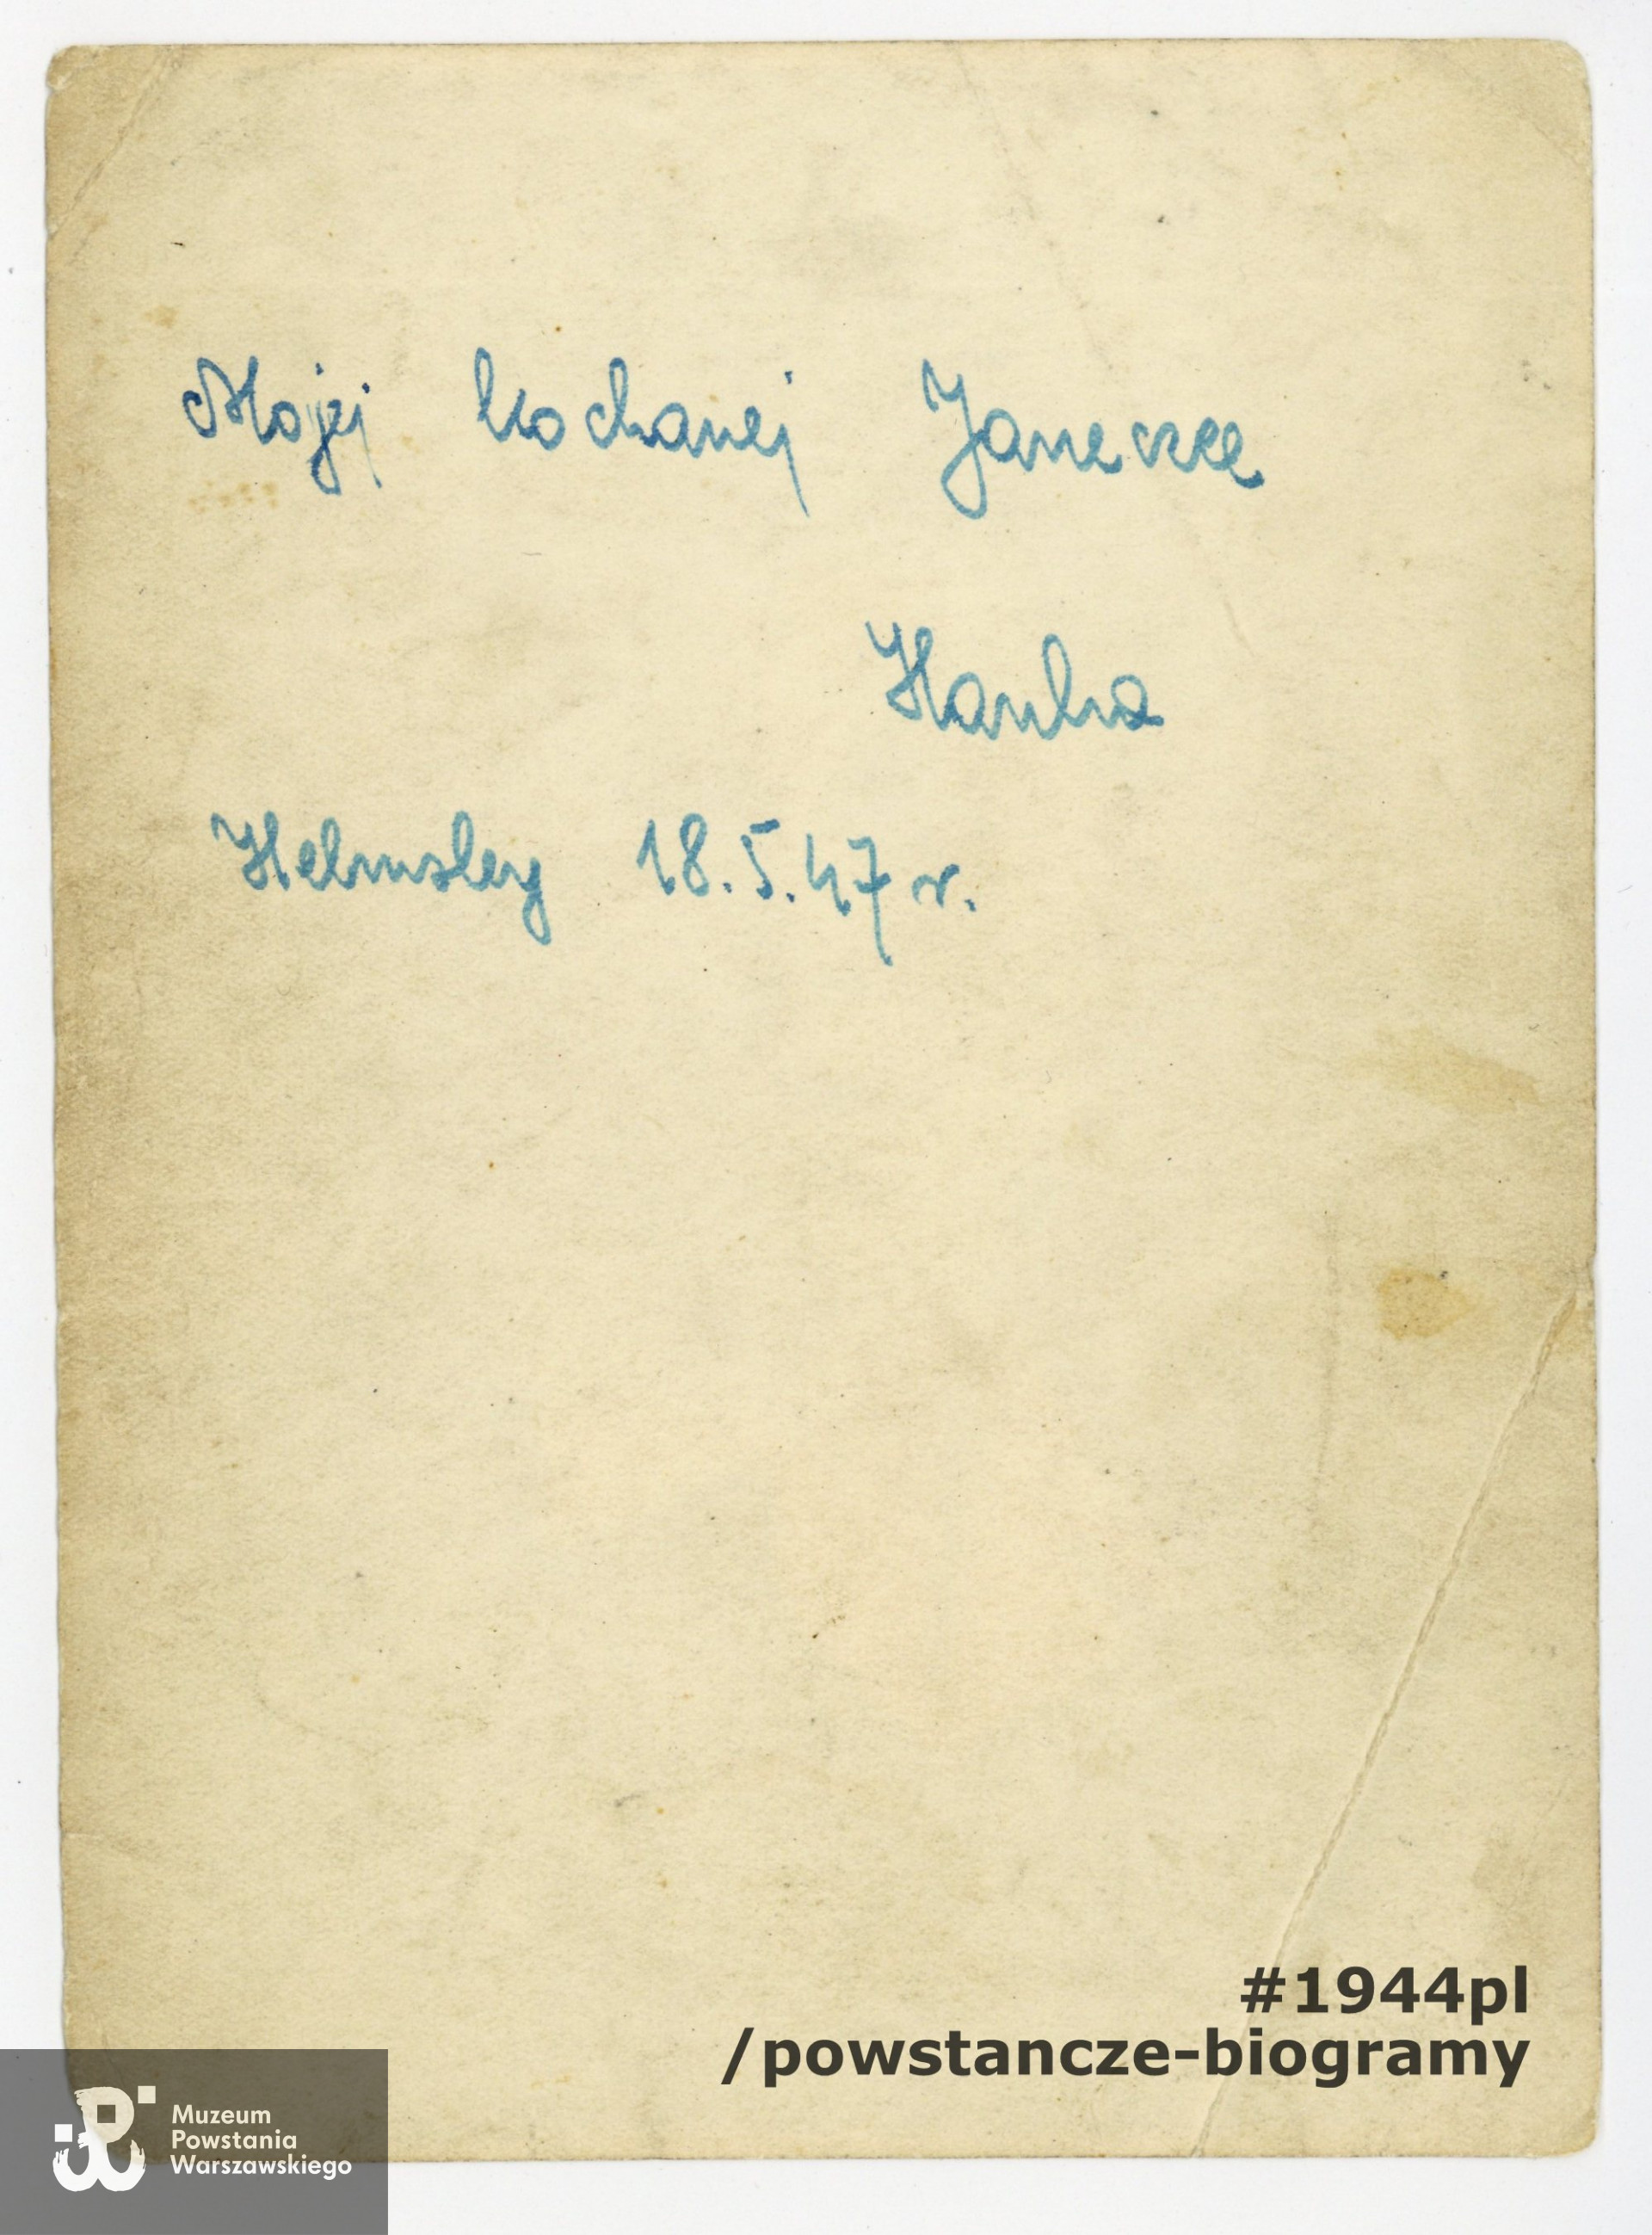 Mojej kochanej Janeczce
Hanka
Helmsley 18.5.47 r.
#1944pl
/powstancze-biogramy
Muzeum
Powstania
Warszawskiego